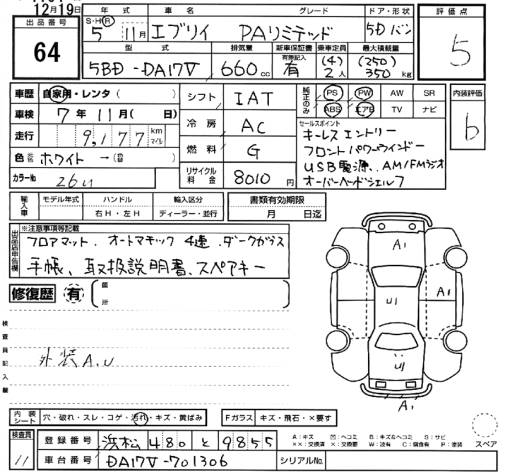 12月19日
出品番号 64
年式 車名 グレード ドア・形状 評価点
S・H・R 5年 11月 エブリイ PAリミテッド 5Dバン 5
型式 排気量 新車保証書 有無記入 乗車定員 最大積載量
5BD-DA17V 660cc 有 (4) 2人 (250) 350kg
車歴 自家用・レンタ ( )
車検 7年11月( 日)
走行 9,177 km マイル
色 ホワイト→( )
カラーNo 26U
シフト IAT
冷房 AC
燃料 G
リサイクル料金 8010円
純正のみ PS PW AW SR
ABS エアB TV ナビ
内装評価 b
セールスポイント
キーレスエントリー
フロントパワーウインドー
USB電源、AM/FMラジオ
オーバーヘッドシェルフ
輸入車 モデル年式 ハンドル 輸入区分 書類有効期限
右H・左H ディーラー・並行 月 日迄
※注意事項等記載
フロアマット、オートマチック4速、ダークガラス
手帳、取扱説明書、スペアキー
修復歴 有 箇所
検査員記入欄
外装A.U
A1
U1
U1
A1
内装シート 穴・破れ・スレ・コゲ・汚れ・キズ・黄ばみ Fガラス キズ・飛石・×要す
検査員 11
登録番号 浜松 480 と 9855
車台番号 DA17V-701306 シリアルNo.
A：キズ U：ヘコミ B：キズ&ヘコミ S：サビ
××：交換済 X：交換要 W：波 C：腐食 H：色褪 P：塗装
スペア